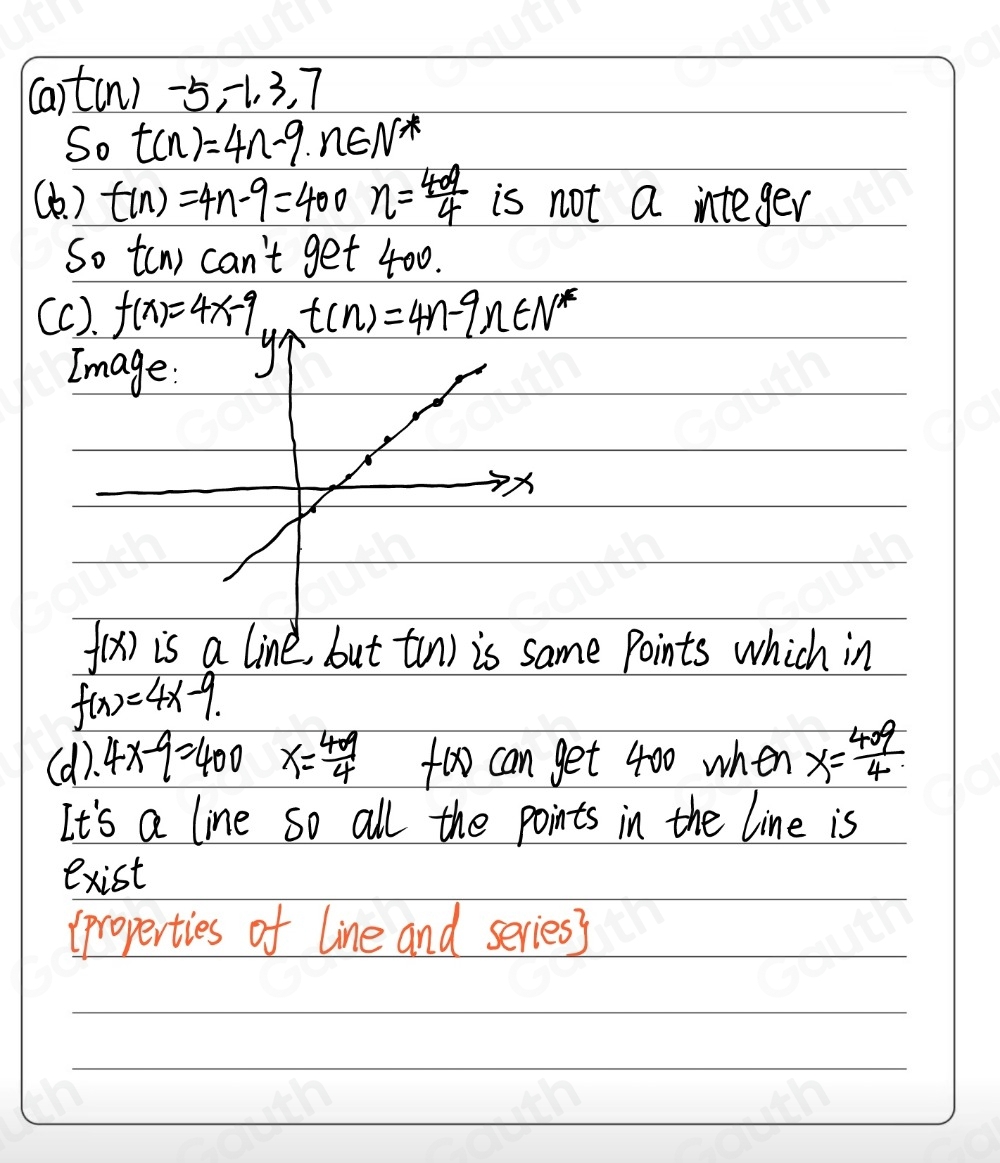 (a) t(n) -5,-1,3,7
So t(n)=4n-9. n∈N*
(b.) t(n)=4n-9=400 n=409/4 is not a integer
So t(n) can't get 400.
(c). f(x)=4x-9 t(n)=4n-9,n∈N*
Image:
y
x
f(x) is a line, but t(n) is same points which in
f(x)=4x-9.
(d).4x-9=400 x=409/4 f(x) can get 400 when x=409/4.
It's a line so all the points in the line is
exist
{properties of line and series}
Gauth